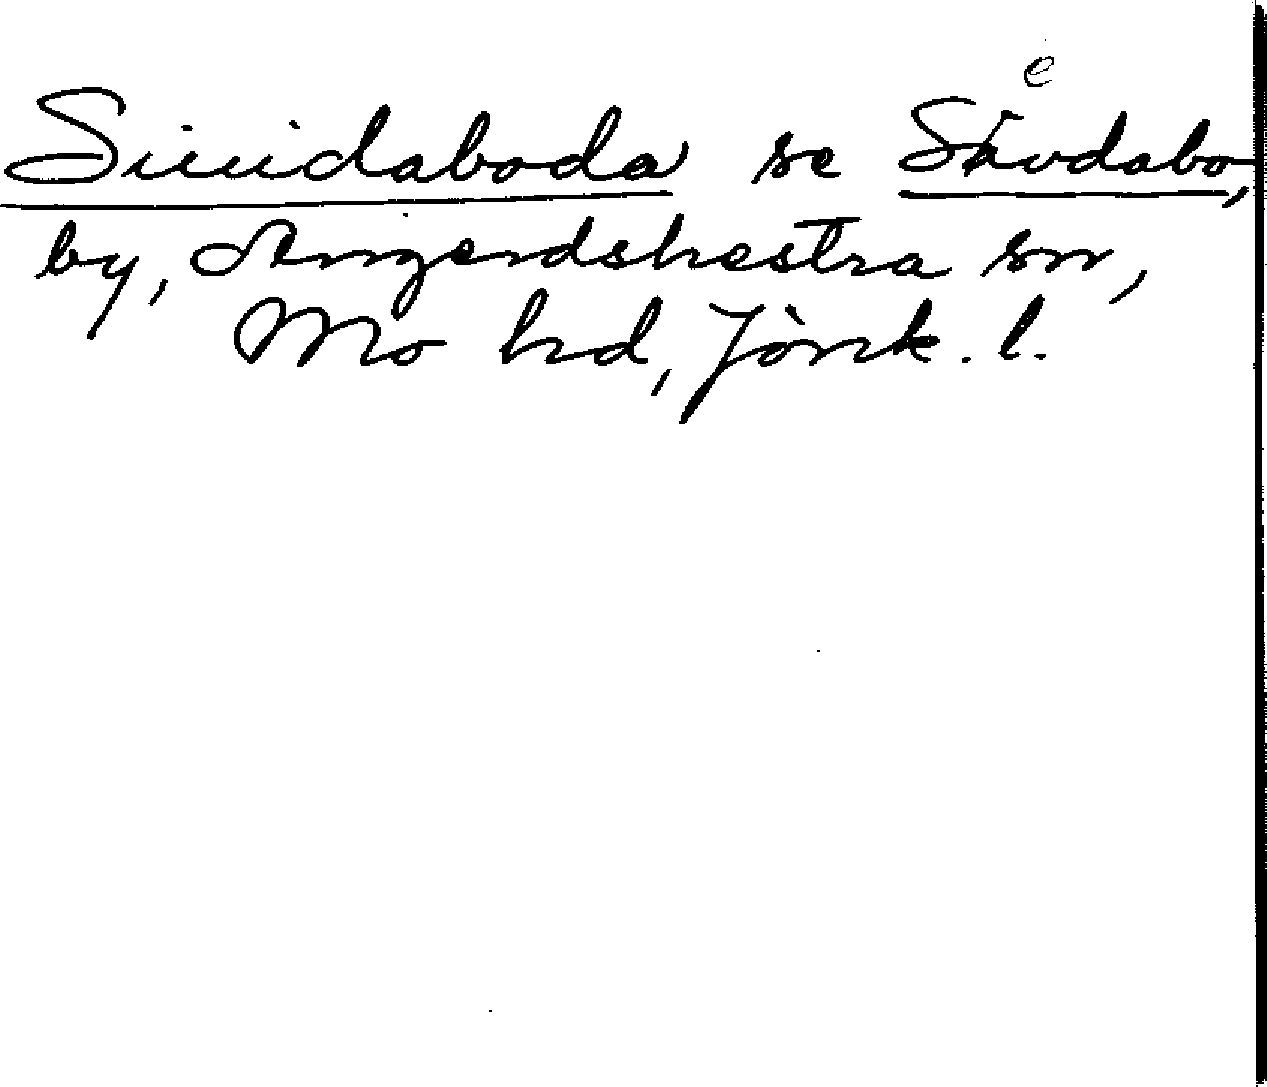 Siuidaboda se Sevdabo,
by, Angerdshestra sn,
Mo hd, Jönk. l.